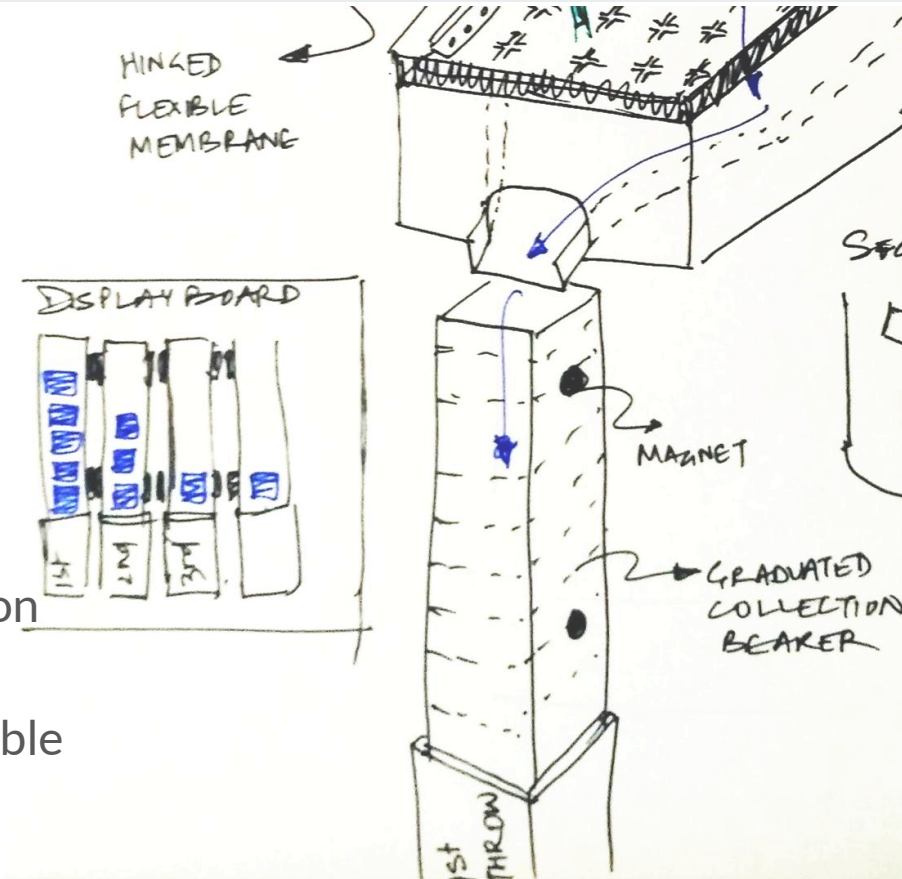 HINGED
FLEXIBLE
MEMBRANE
DISPLAY BOARD
1st
2nd
3rd
MAGNET
GRADUATED
COLLECTION
BEARER
1st
THROW
on
ble